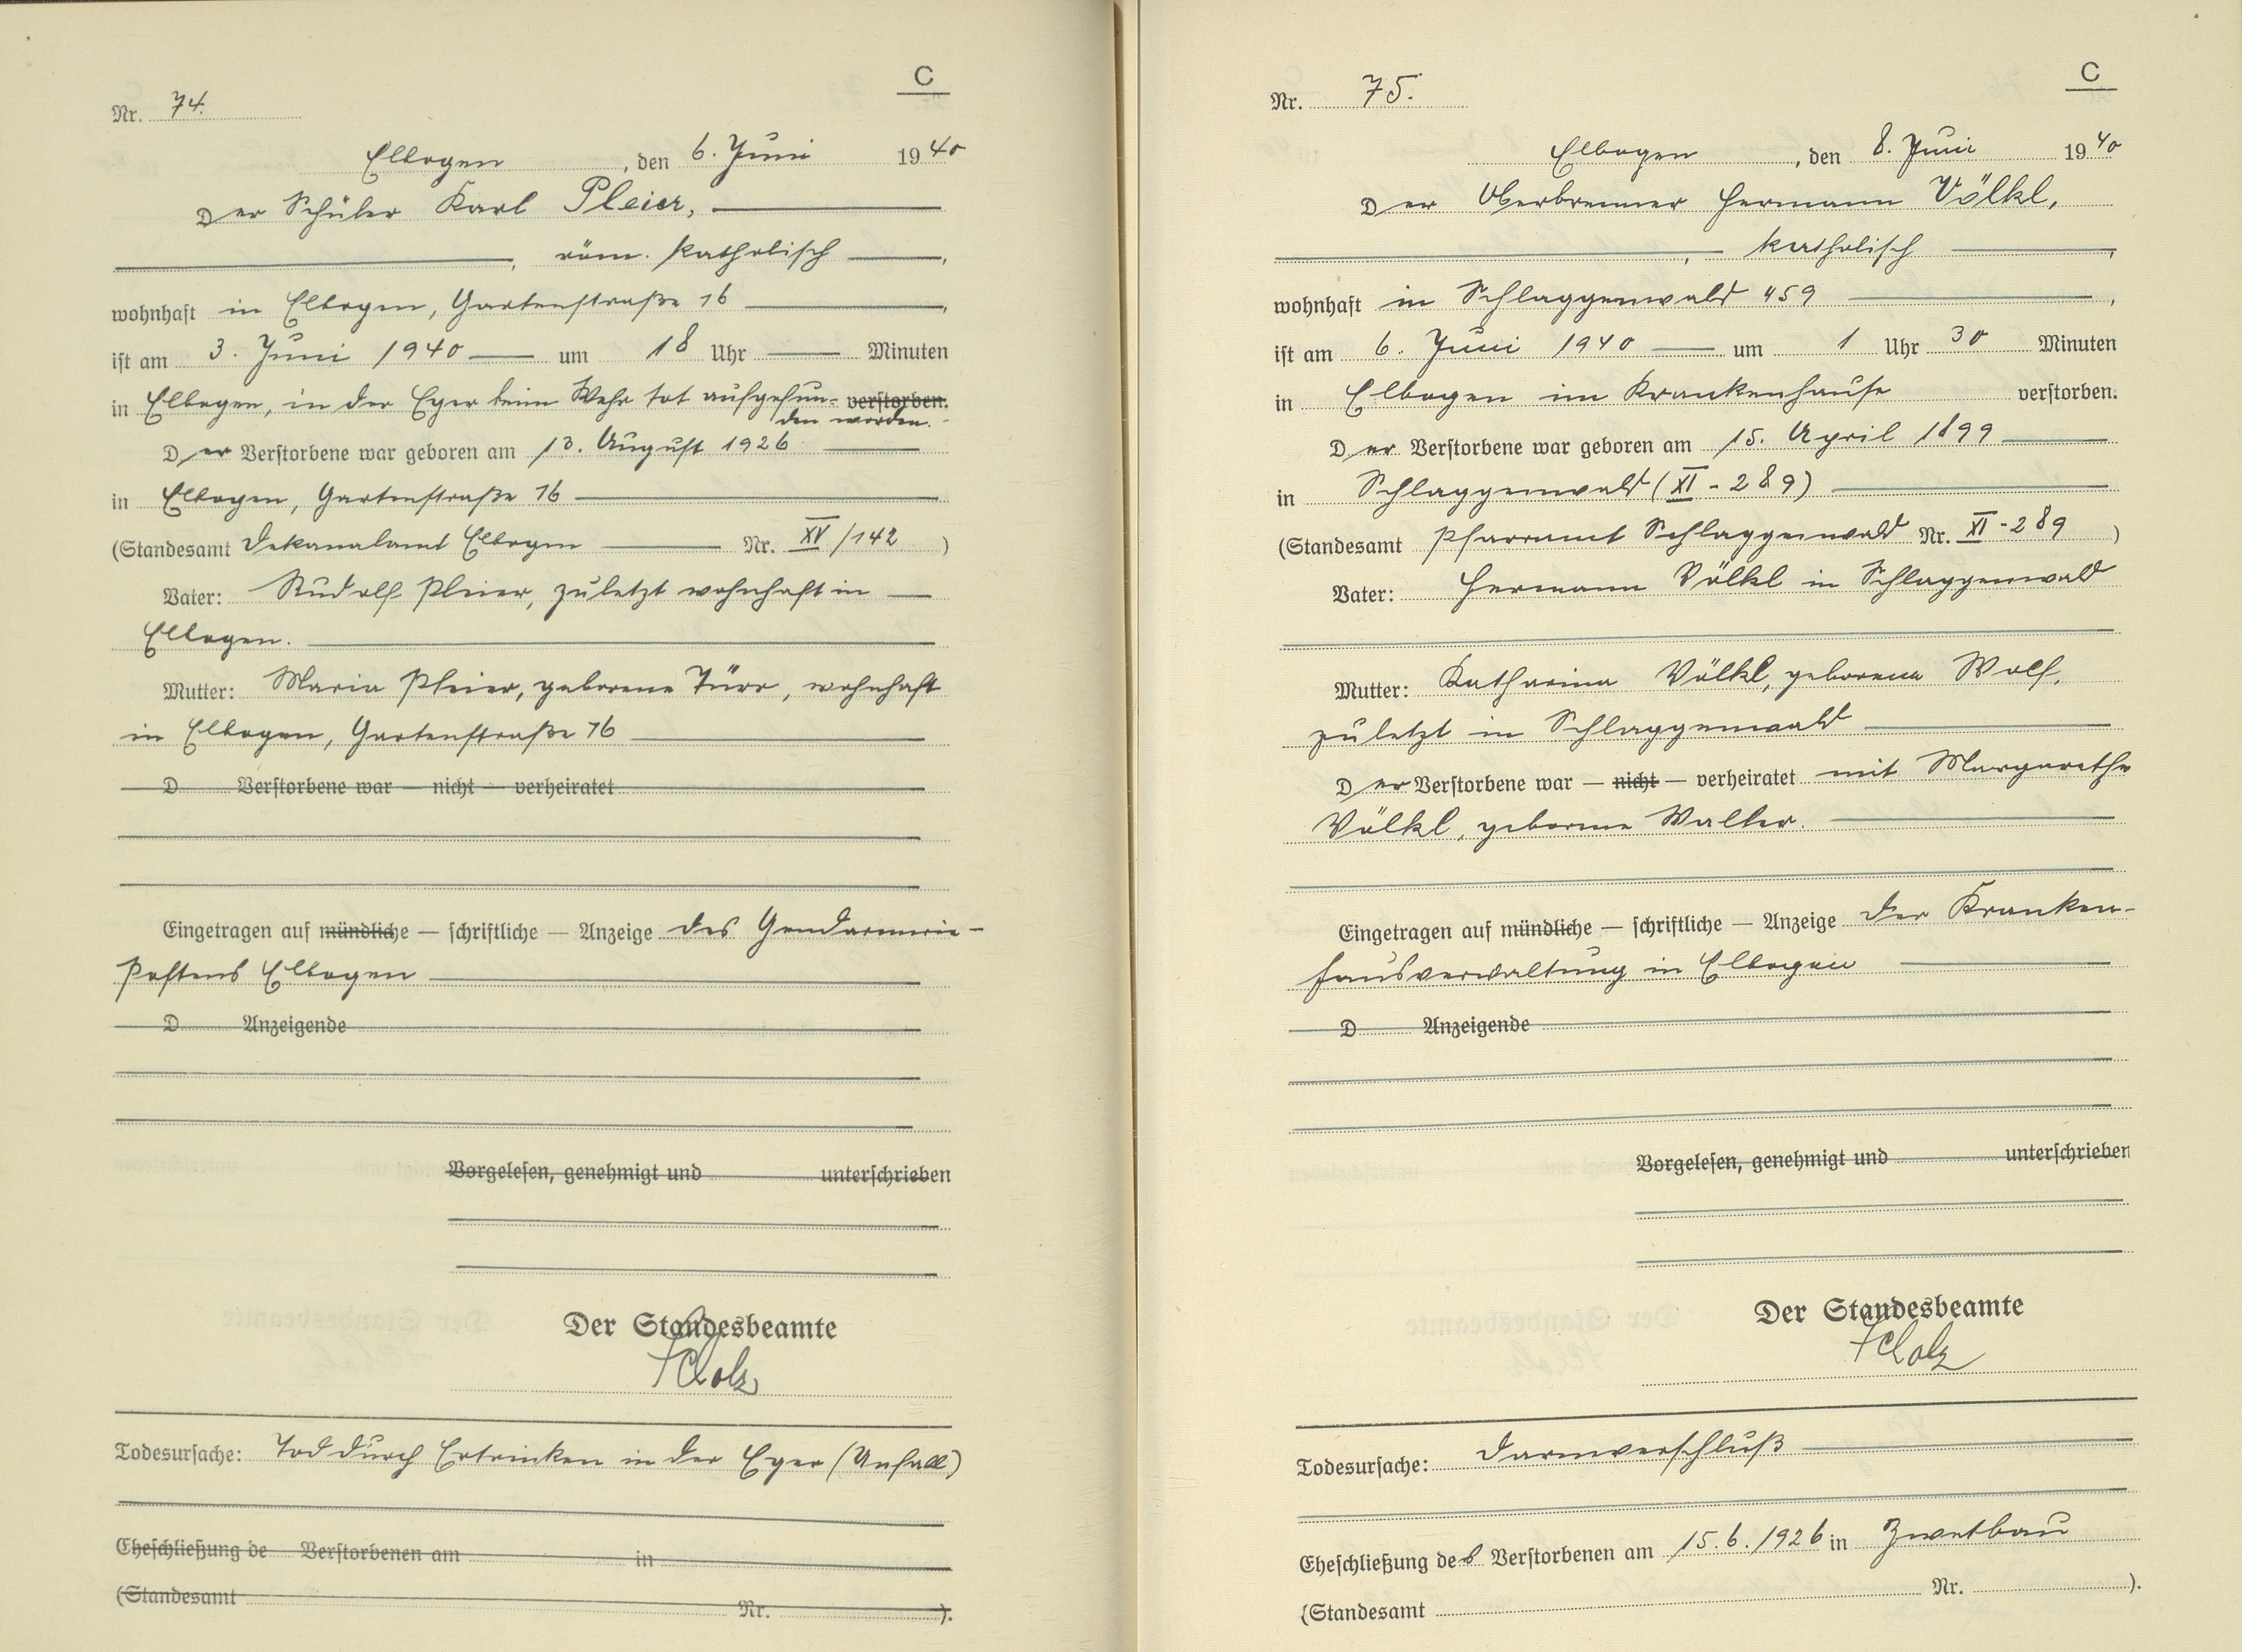 C
Nr. 74.
Elbogen, den 6. Juni 1940
Der Schüler Karl Pleier,
, röm. katholisch,
wohnhaft in Elbogen, Gartenstraße 16,
ist am 3. Juni 1940 um 18 Uhr Minuten
in Elbogen, in der Eger beim Wehr tot aufgefun- verstorben.
den worden.
Der Verstorbene war geboren am 13. August 1926
in Elbogen, Gartenstraße 16
(Standesamt Dekanalamt Elbogen Nr. XV/142)
Vater: Rudolf Pleier, zuletzt wohnhaft in
Elbogen.
Mutter: Maria Pleier, geborene Türr, wohnhaft
in Elbogen, Gartenstraße 16
D Verstorbene war — nicht — verheiratet
Eingetragen auf mündliche — schriftliche — Anzeige des Gendarmerie-
Postens Elbogen
D Anzeigende
Vorgelesen, genehmigt und unterschrieben
Der Standesbeamte
Scholz
Todesursache: Tod durch Ertrinken in der Eger (Unfall)
Eheschließung de Verstorbenen am in
(Standesamt Nr. ).
C
Nr. 75.
Elbogen, den 8. Juni 1940
Der Oberbrenner Hermann Völkl,
, katholisch,
wohnhaft in Schlaggenwald 459,
ist am 6. Juni 1940 um 1 Uhr 30 Minuten
in Elbogen im Krankenhause verstorben.
Der Verstorbene war geboren am 15. April 1899
in Schlaggenwald (XI - 289)
(Standesamt Pfarramt Schlaggenwald Nr. XI - 289)
Vater: Hermann Völkl in Schlaggenwald
Mutter: Katharina Völkl, geborene Wolf,
zuletzt in Schlaggenwald
Der Verstorbene war — nicht — verheiratet mit Margarethe
Völkl, geborene Walter.
Eingetragen auf mündliche — schriftliche — Anzeige der Kranken-
hausverwaltung in Elbogen
D Anzeigende
Vorgelesen, genehmigt und unterschrieben
Der Standesbeamte
Scholz
Todesursache: Darmverschluß
Eheschließung des Verstorbenen am 15.6.1926 in Zwetbau
(Standesamt Nr. ).